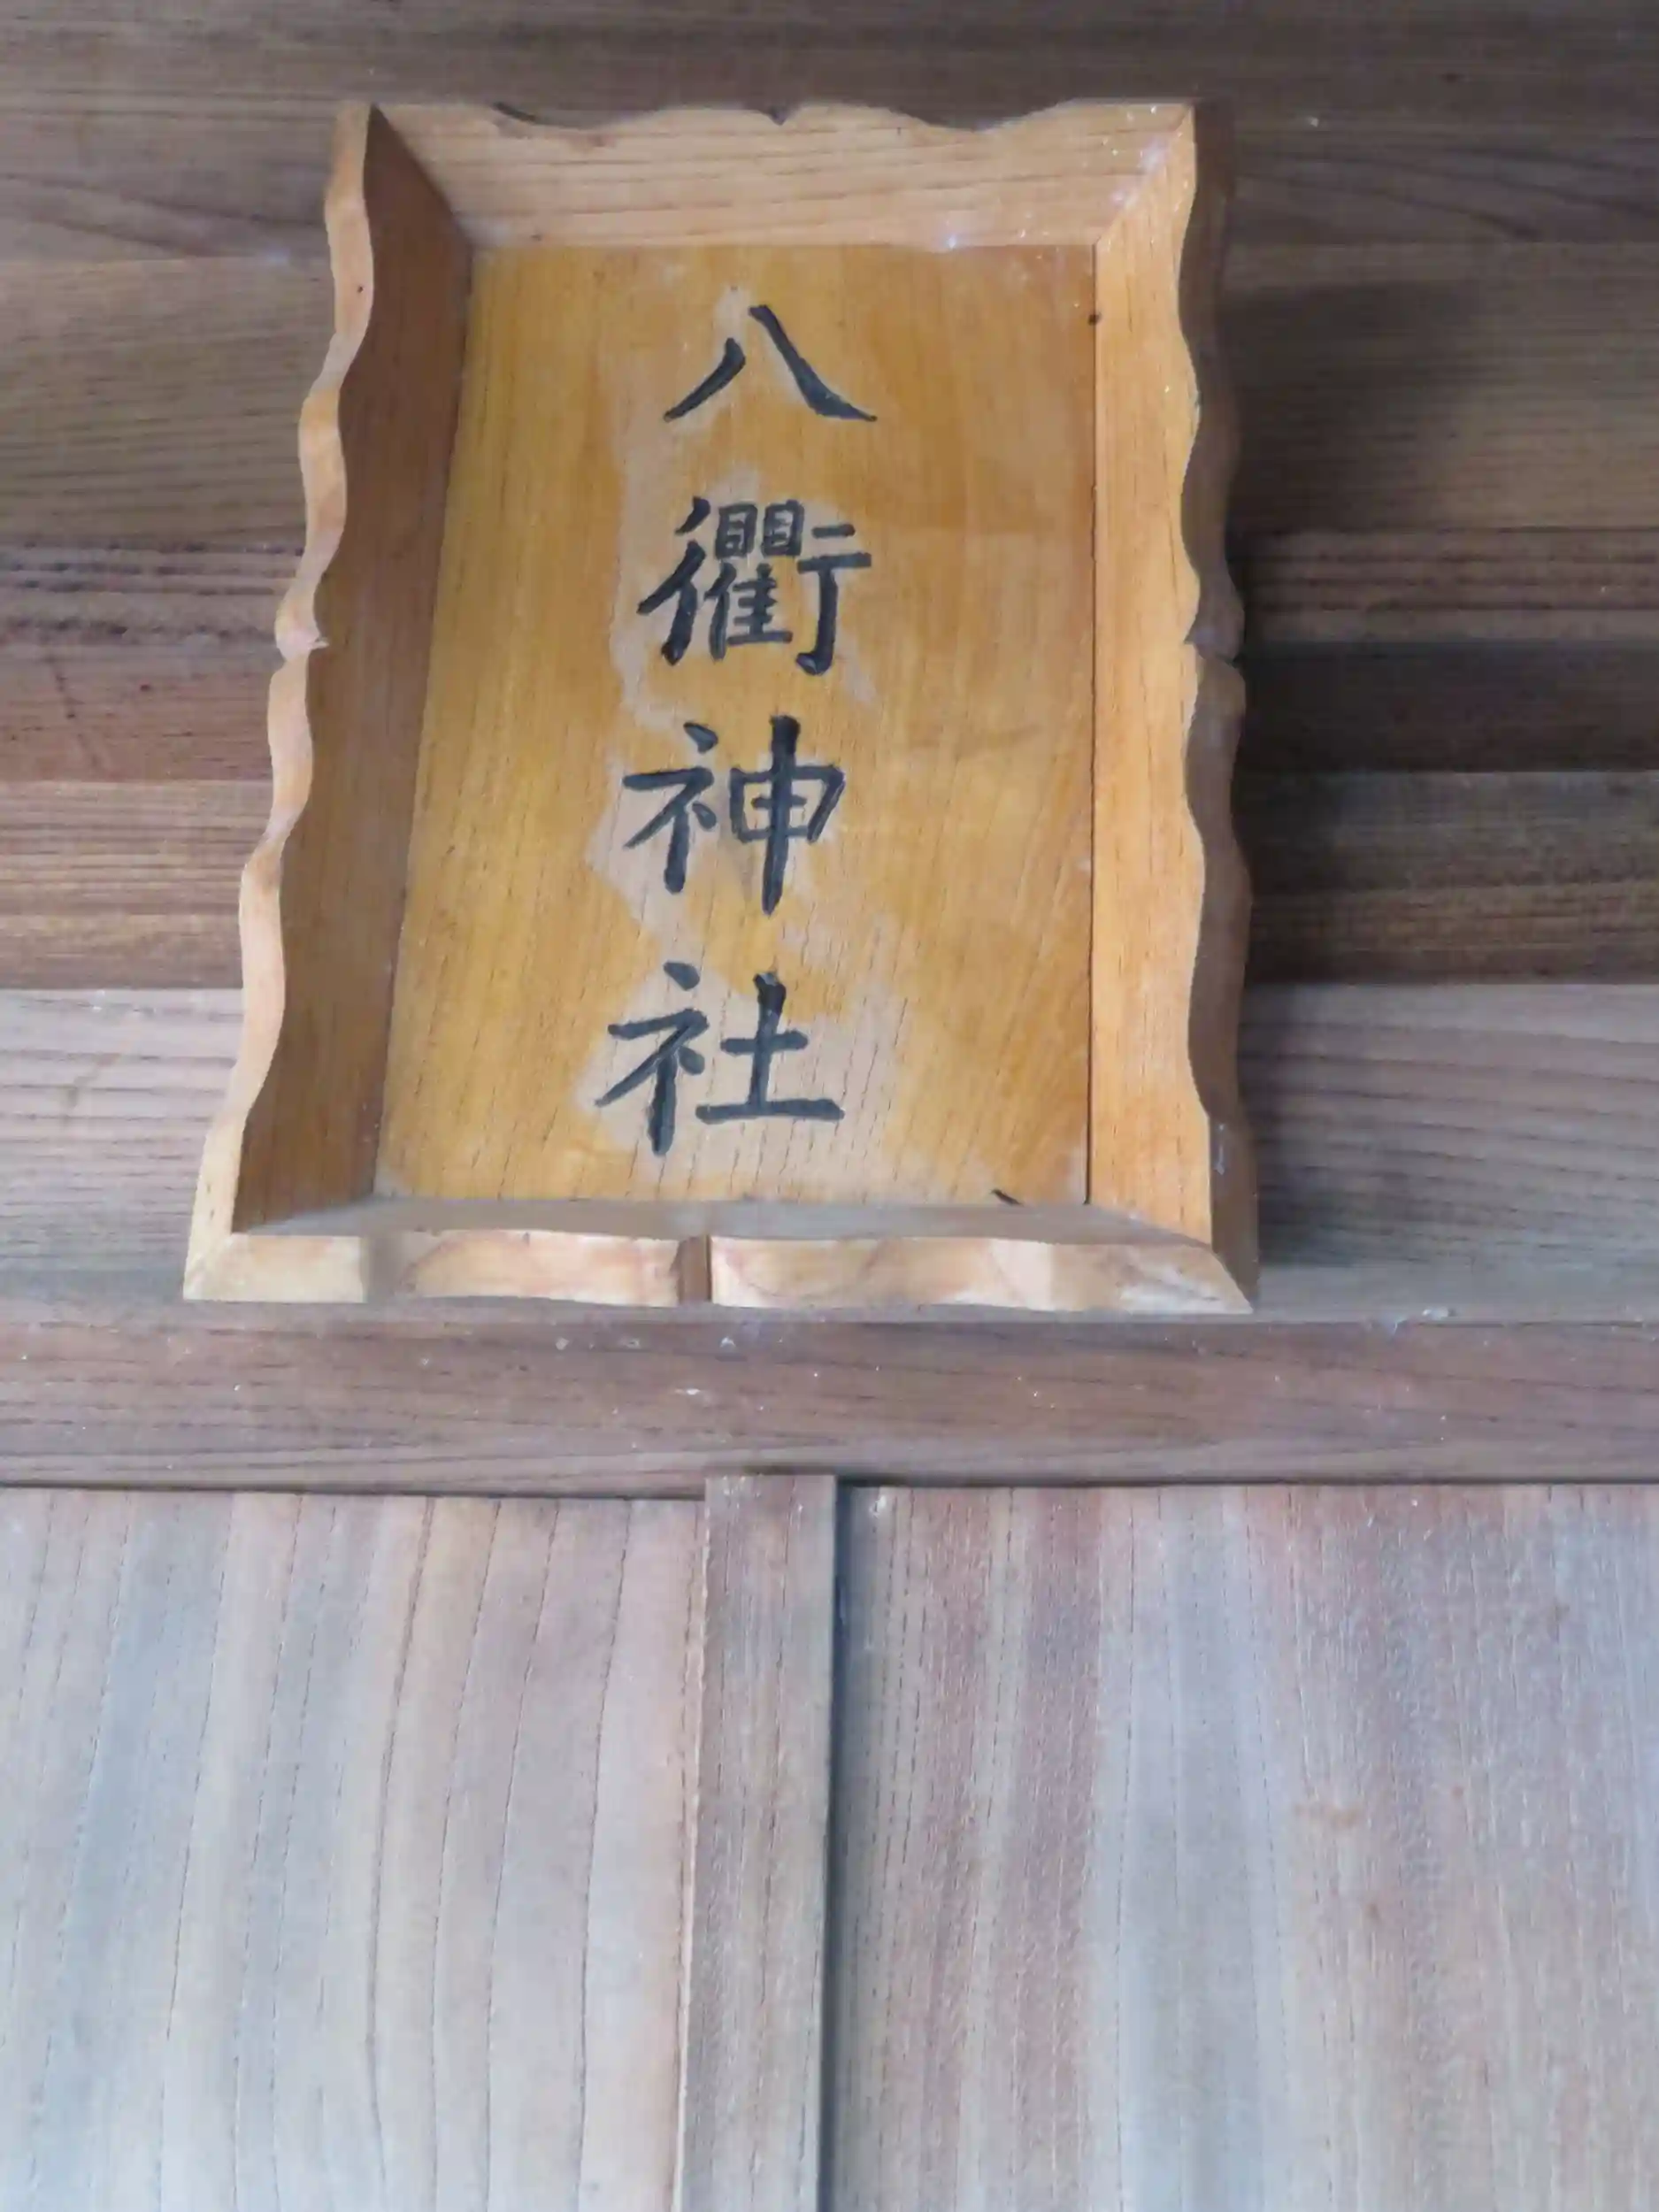 八衢神社